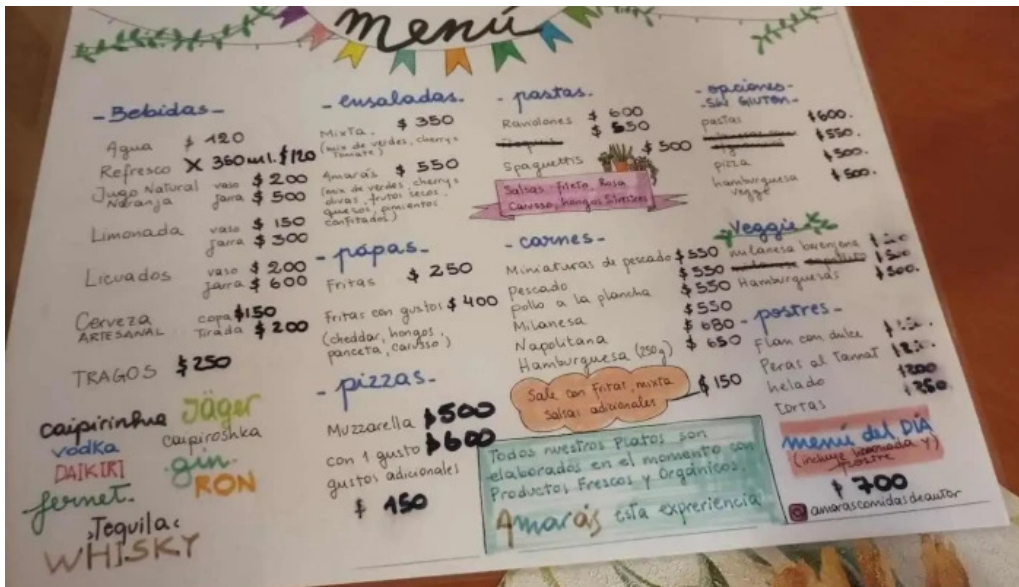 menú
- Bebidas -
Agua $ 120
Refresco X 350 ml. $120
Jugo Natural vaso $ 200
Naranja jarra $ 500
Limonada vaso $ 150
jarra $ 300
Licuados vaso $ 200
jarra $ 600
Cerveza copa $150
ARTESANAL Tirada $ 200
TRAGOS $250
caipirinha Jäger
vodka caipiroshka
DAIKIRI gin
fernet. RON
Tequila
WHISKY
- ensaladas.
Mixta. $ 350
(mix de verdes, cherrys
Tomate)
Amarás $ 550
(mix de verdes, cherrys
olivas, frutos secos,
quesos, pimientos
confitados.)
- pápas -
Fritas $ 250
Fritas con gustos $ 400
(cheddar, hongos,
panceta, carusso)
- pizzas -
Muzzarella $500
con 1 gusto $600
gustos adicionales
$ 150
- pastas.
Raviolones $ 600
$ 550
Spaguettis $ 500
Salsas: Fileto, Rosa
Carusso, hongos Silvestres
- carnes -
Miniaturas de pescado $ 550
pescado $ 550
pollo a la plancha $ 550
Milanesa $ 550
Napolitana $ 680
Hamburguesa (250g) $ 650
Sale con Fritas, mixta
Salsas adicionales $ 150
Todos nuestros Platos son
elaborados en el momento con
Productos Frescos y Orgánicos.
Amarás esta expreriencia
- opciones -
- SIN GLUTEN -
pastas $600.
$550.
pizza $500.
hamburguesa $500.
veggé
Veggie
milanesa berenjena
Hamburguesas $500.
- postres -
Flan con dulce
Peras al Tannat
helado
tortas
menú del DÍA
(incluye limonada y)
postre
$ 700
amarascomidasdeautor